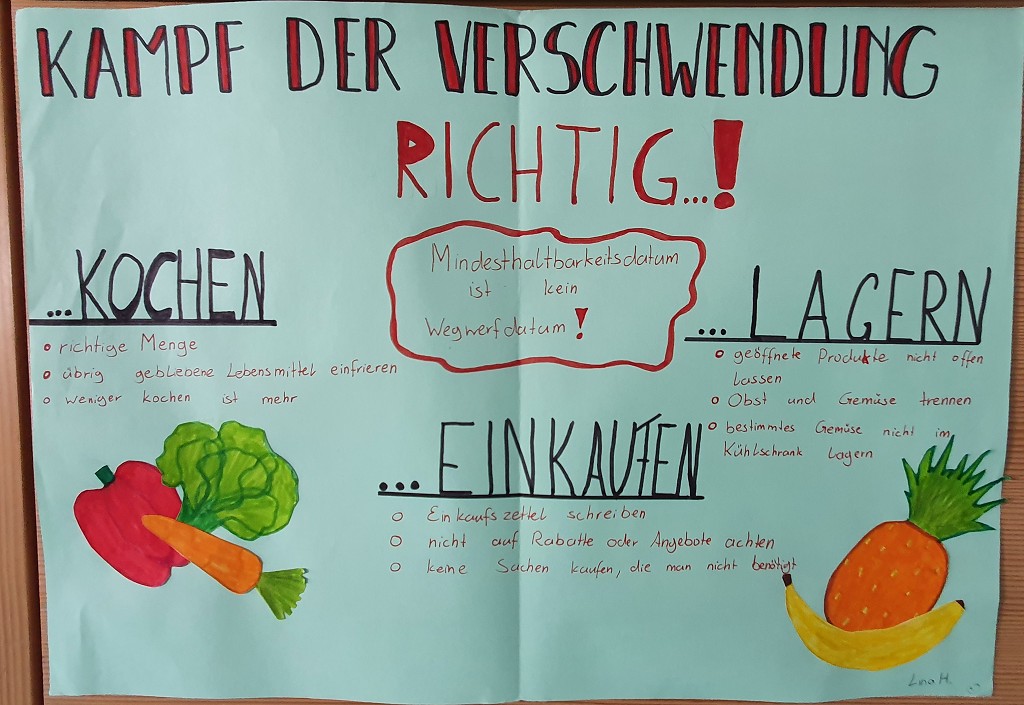 KAMPF DER VERSCHWENDUNG
RICHTIG...!
Mindesthaltbarkeitsdatum
ist kein
Wegwerfdatum!
...KOCHEN
o richtige Menge
o übrig gebliebene Lebensmittel einfrieren
o weniger kochen ist mehr
...LAGERN
o geöffnete Produkte nicht offen
lassen
o Obst und Gemüse trennen
o bestimmtes Gemüse nicht im
Kühlschrank lagern
...EINKAUFEN
o Einkaufszettel schreiben
o nicht auf Rabatte oder Angebote achten
o keine Sachen kaufen, die man nicht benötigt
Lina H.